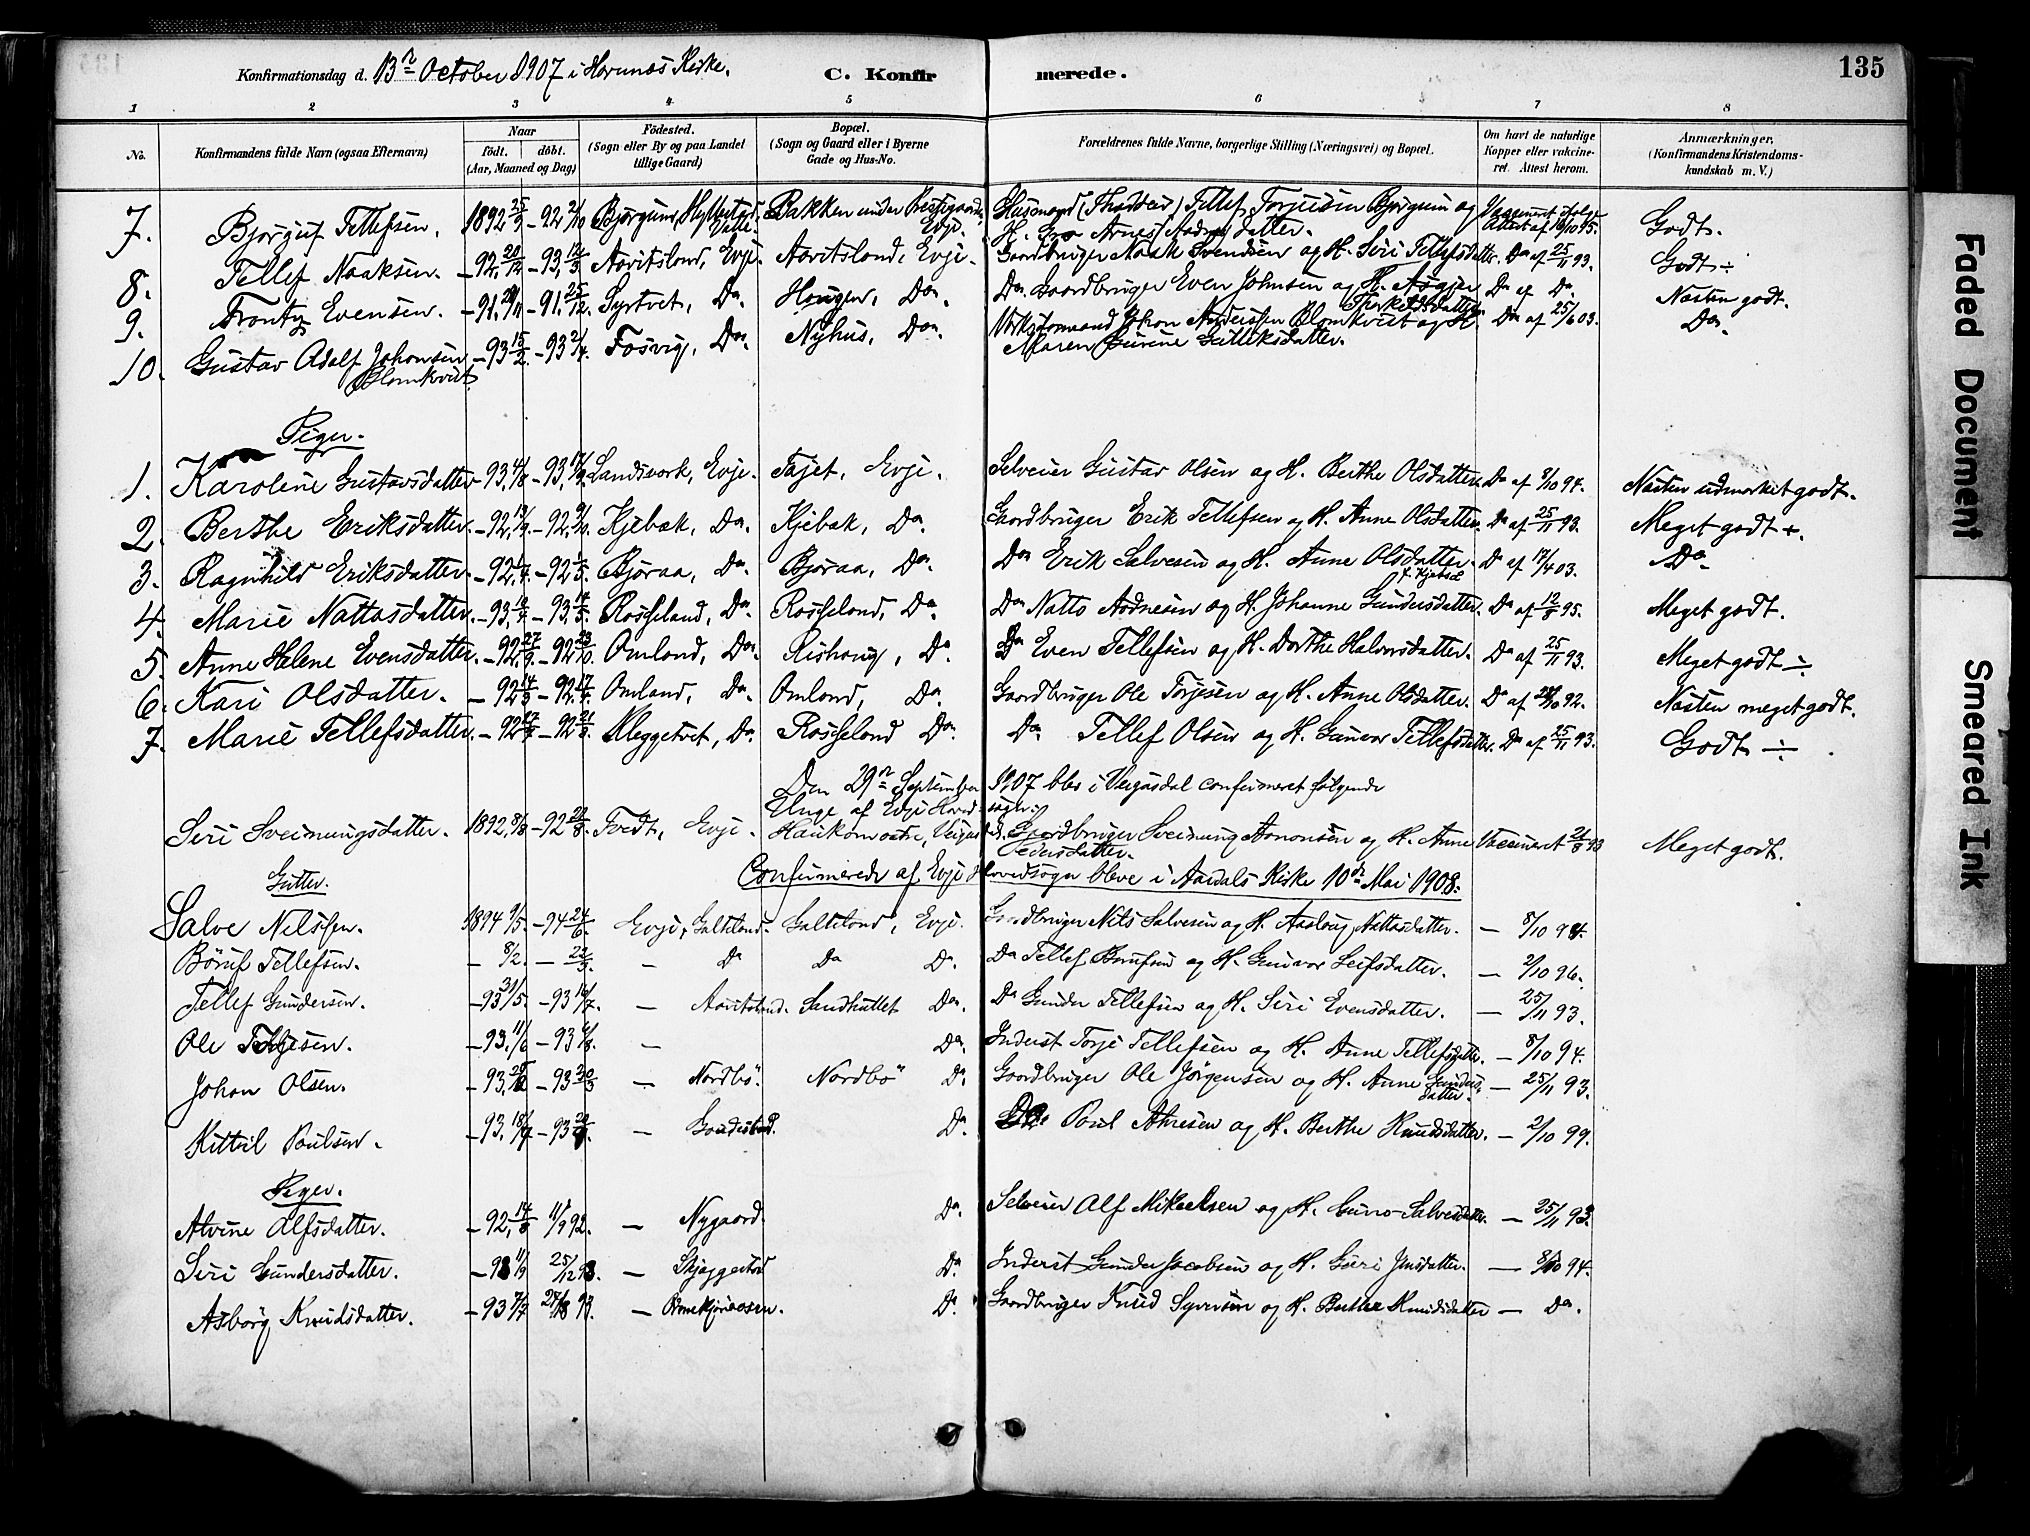 135
Konfirmationsdag d. 13de October 1907 i Hornnæs Kirke.
C. Konfir merede.
1 2 3 4 5 6 7 8
No.
Konfirmandens fulde Navn (ogsaa Efternavn)
Naar
født. døbt.
(Aar, Maaned og Dag)
Fødested.
(Sogn eller By og paa Landet
tillige Gaard)
Bopæl.
(Sogn og Gaard eller i Byerne
Gade og Hus-No.
Forældrenes fulde Navne, borgerlige Stilling (Næringsvei) og Bopæl.
Om havt de naturlige
Kopper eller vakcine-
ret. Attest herom.
Anmærkninger.
(Konfirmandens Kristendoms-
kundskab m. V.)
7. Bjørguf Tellefsen. 1892 25/9 - 92 2/10 Bjørgum, Hyllestad Valle. Bakken under Præstegaarden Evje. Husmand Tellef Torjusen Bjørgum og H. Gro Arnesdatter. Godt.
8. Tellef Naaksen. - 92, 20/12 - 93, 12/3 Aavitsland, Evje. Aavitsland, Evje. Gaardbruger Naak Svendsen og H. Siri Tellefsdatter. Do af 25/11 93. Godt ÷
9. Frantz Evensen. - 91. - 91. 25/12. Syrtveit, Do. Haugen, Do. Do Gaardbruger Even Johnsen og H. Asgjer Torkelsdatter. Do af Do. Næsten godt.
10. Gustav Adolf Johansen Blomkvist - 93 15/2. - 93 2/4. Fosvig, Do. Nyhus, Do. Johan Andersen Blomkvist og H. Maren Gurine Gulleksdatter. Do af 25/6 03. Do.
Piger.
1. Karoline Gustavsdatter - 93, 4/8 - 93, 17/9. Landsverk, Evje. Tajet, Evje. Selveier Gustav Olsen og H. Berthe Olsdatter. Do af 8/10 94. Næsten udmærket godt.
2. Berthe Eriksdatter. - 92, - 92, Kjebak, Do. Kjebak, Do. Gaardbruger Erik Tellefsen og H. Anne Olsdatter. Do af 25/11 93. Meget godt +.
3. Ragnhild Eriksdatter. - 92, - 92 Bjøraa, Do. Bjøraa, Do. Do Erik Salvesen og H. Anne Olsdatter. Do af 17/4 03. Do
4. Marie Nattasdatter. - 93, - 93, Rosseland, Do. Rosseland, Do. Do Natto Aadnesen og H. Johanne Gundersdatter. Do af 12/8 95. Meget godt.
5. Anne Helene Evensdatter. - 92, 27/9. - 92 23/10. Omland, Do. Rishaug, Do. Do Even Tellefsen og H. Dorthe Halvorsdatter. Do af 25/11 93. Meget godt ÷
6. Kari Olsdatter. - 92 14/3 - 92, 17/4. Omland, Do. Omland, Do. Gaardbruger Ole Torjesen og H. Anne Olsdatter. Do af 92. Næsten meget godt.
7. Marie Tellefsdatter. - 92 - 92 Neggetvet, Do. Rosseland Do. Do Tellef Olsen og H. Gunvor Tellefsdatter. Do af 25/11 93. Godt ÷
Den 29de September 1907 blev i Veigusdal confirmeret følgende
Unge af Evje Hovedsogn:
Siri Sveinungsdatter. 1892, 8/8 - 92 28/8. Tvedt, Evje. Gaardbruger Sveinung Aanonsen og H. Anne Pedersdatter. Vaccineret Meget godt.
Confirmerede af Evje Hovedsogn bleve i Aardals Kirke 10de Mai 1908.
Gutter.
Salve Nilssen. 1894 9/5. - 94 24/6. Evje, Galteland. Galteland, Evje. Gaardbruger Nils Salvesen og H. Aaslaug Nattasdatter. - 8/10 94.
Børuf Tellefsen. - 8/2. - 22/3. - Do Do Do. Do Tellef Børufsen og H. Gunvor Leifsdatter. - 2/10 96.
Tellef Gundersen. - 93 31/5. - 93 16/7. - Aavitsland. Sandhullet Do. Do Gunder Tellefsen og H. Siri Evensdatter. - 25/11 93.
Ole Torjesen. - 93, 11/6 - 93 6/8. - Do. Inderst Torje Tellefsen og H. Anne Tellefsdatter. - 8/10 94.
Johan Olsen. - 93, - 93 - Nordbø. Nordbø Do. Gaardbruger Ole Jørgensen og H. Anne Gundersdatter. - 25/11 93.
Kittil Paulsen. - 93, - 93 - Do. Do. Paul Ahresen og H. Berthe Knudsdatter. - 2/10 99.
Piger.
Alvine Alfsdatter. - 92, 14/8 11/9 92. - Nygaard. Do. Selveier Alf Mikaelsen og H. Guro Salvesdatter. - 25/11 93.
Siri Gundersdatter. - 93 11/9 25/12 93. - Skjeggestad Do. Inderst Gunder Jacobsen og H. Siri Jensdatter. - 8/10 94.
Asborg Knudsdatter. - 93 7/7 27/8 93. - Do. Gaardbruger Knud Syversen og H. Berthe Knudsdatter - Do.
Faded Document
Smeared Ink